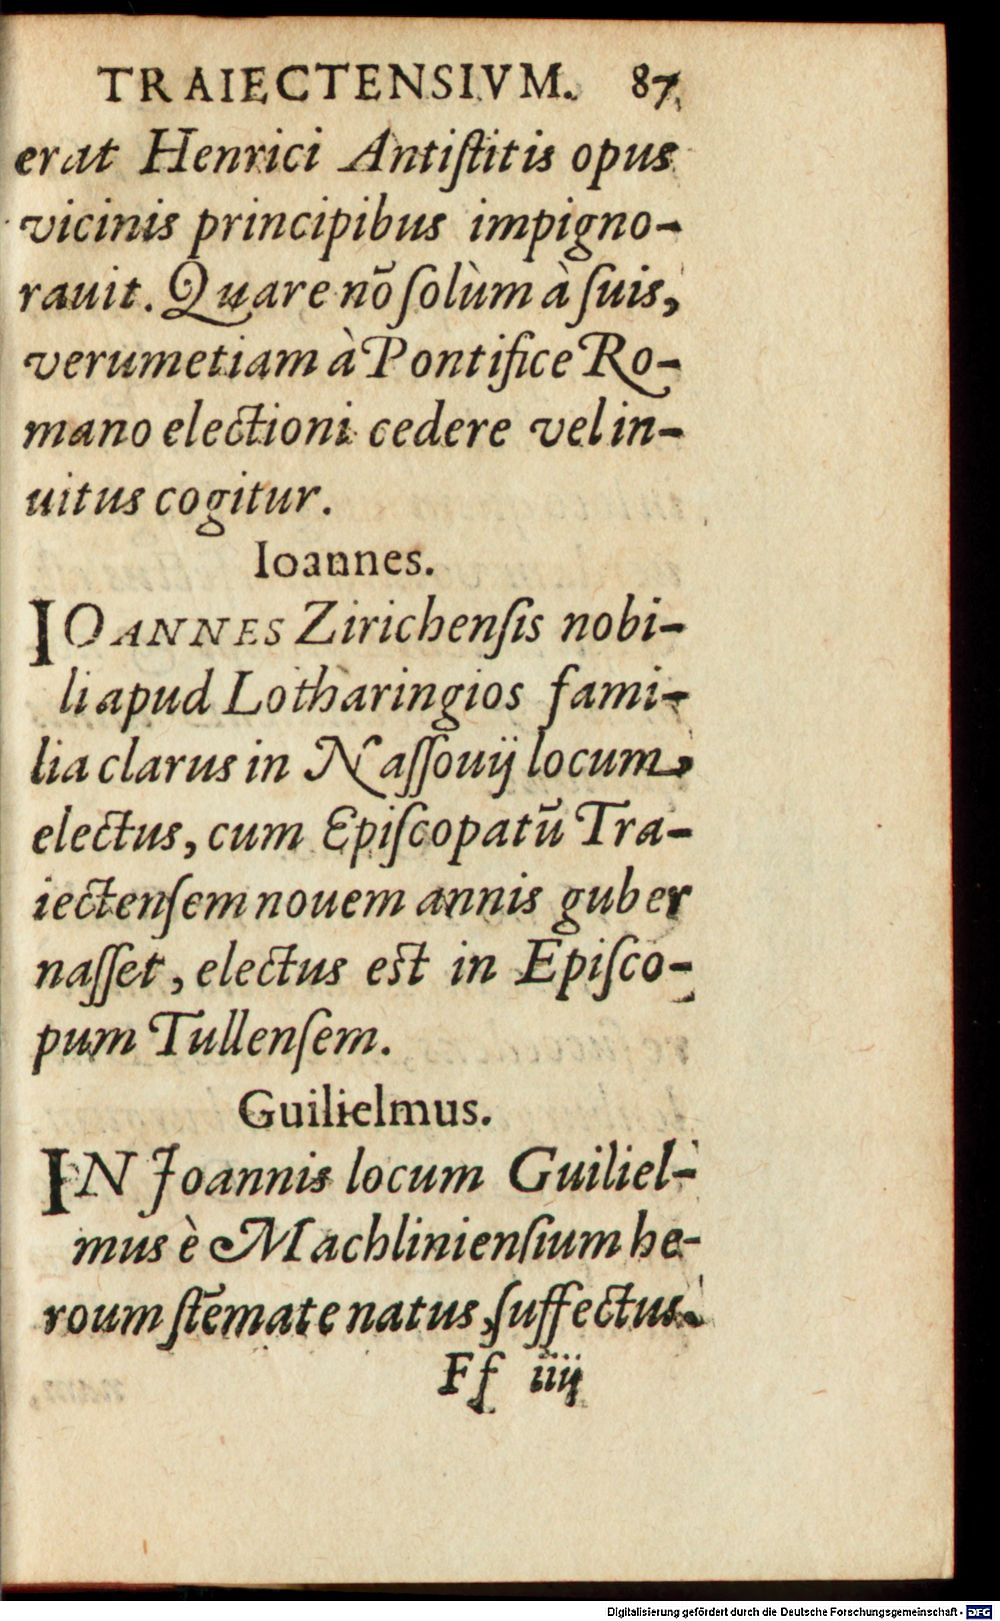 TRAIECTENSIVM. 87
erat Henrici Antiſtitis opus
vicinis principibus impigno-
rauit. Quare nõ ſolùm à ſuis,
verumetiam à Pontifice Ro-
mano electioni cedere vel in-
uitus cogitur.
Ioannes.
IOANNES Zirichenſis nobi-
li apud Lotharingios fami-
lia clarus in Naſſouij locum
electus, cum Epiſcopatũ Tra-
iectenſem nouem annis guber
naſſet, electus est in Epiſco-
pum Tullenſem.
Guilielmus.
IN Joannis locum Guiliel-
mus è Machlinienſium he-
roum ſtẽmate natus, ſuffectus
Ff iiij
Digitalisierung gefördert durch die Deutsche Forschungsgemeinschaft - DFG